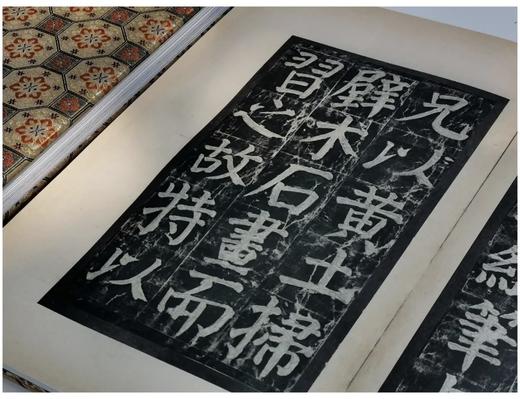 紙筆
兄以黃土掃
壁木石畫而
習之故特以